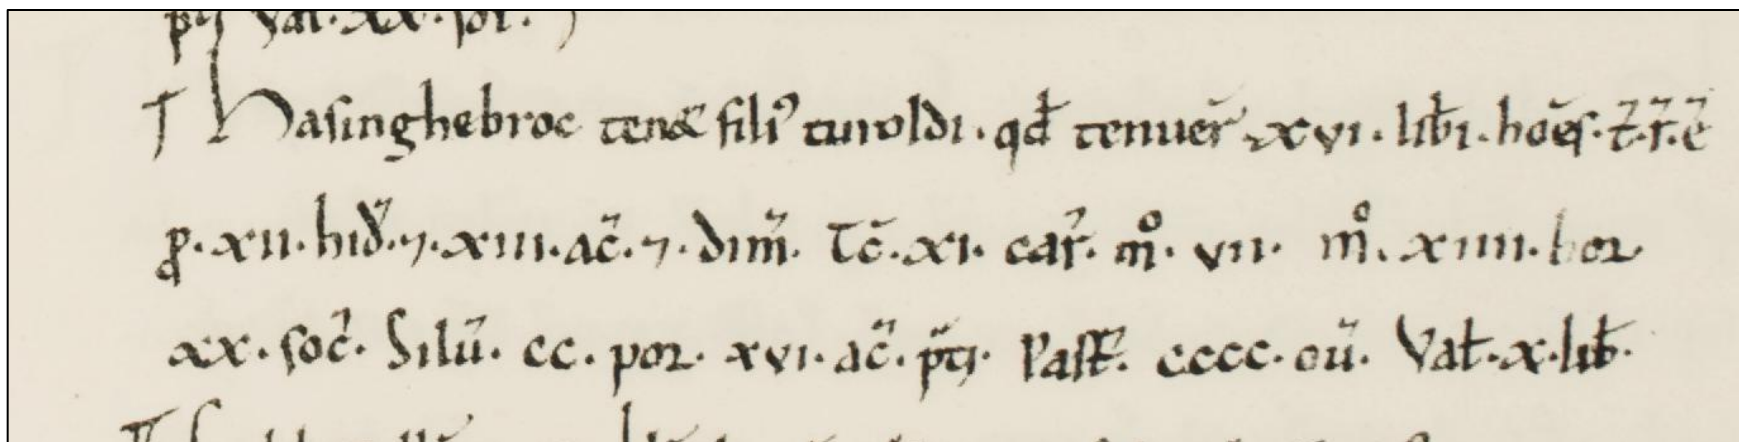 pꝗ Val·xx·sol·
Ꞇ hasinghebroc ten& fili᾿ turoldi·qđ tenuer̃·xvi·lib̄i·hoẽs·t̃·r̃·ẽ
ꝓ·xii·hid̃·⁊·xiii·ac̃·⁊·dim̃· Tc̃·xi·car̃·m°·vii· m°·xiiii·bor·
xx·soc̃· Silũ·cc·por·xvi·ac̃·p̃ti· Past̃·cccc·oũ· Val̃·x·lib̃·